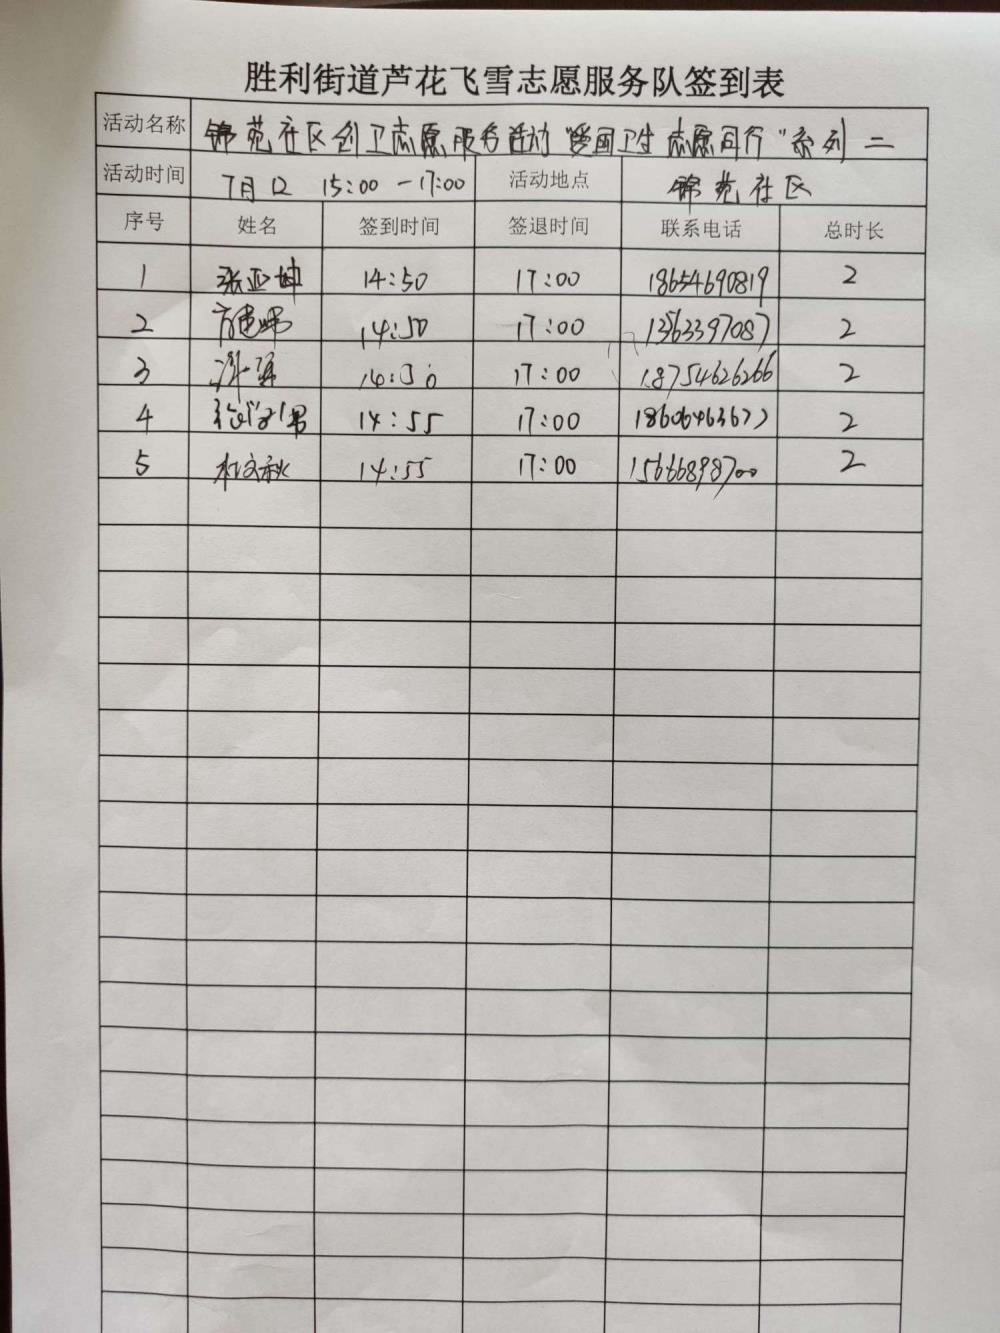 胜利街道芦花飞雪志愿服务队签到表
活动名称 锦苑社区创卫志愿服务活动"爱国卫生 志愿同行"系列二
活动时间 7月12 15:00-17:00 活动地点 锦苑社区
序号 姓名 签到时间 签退时间 联系电话 总时长
1 张亚坤 14:50 17:00 18654690819 2
2 14:50 17:00 13563397087 2
3 17:00 18754626266 2
4 14:55 17:00 2
5 杜文秋 14:55 17:00 15666898700 2